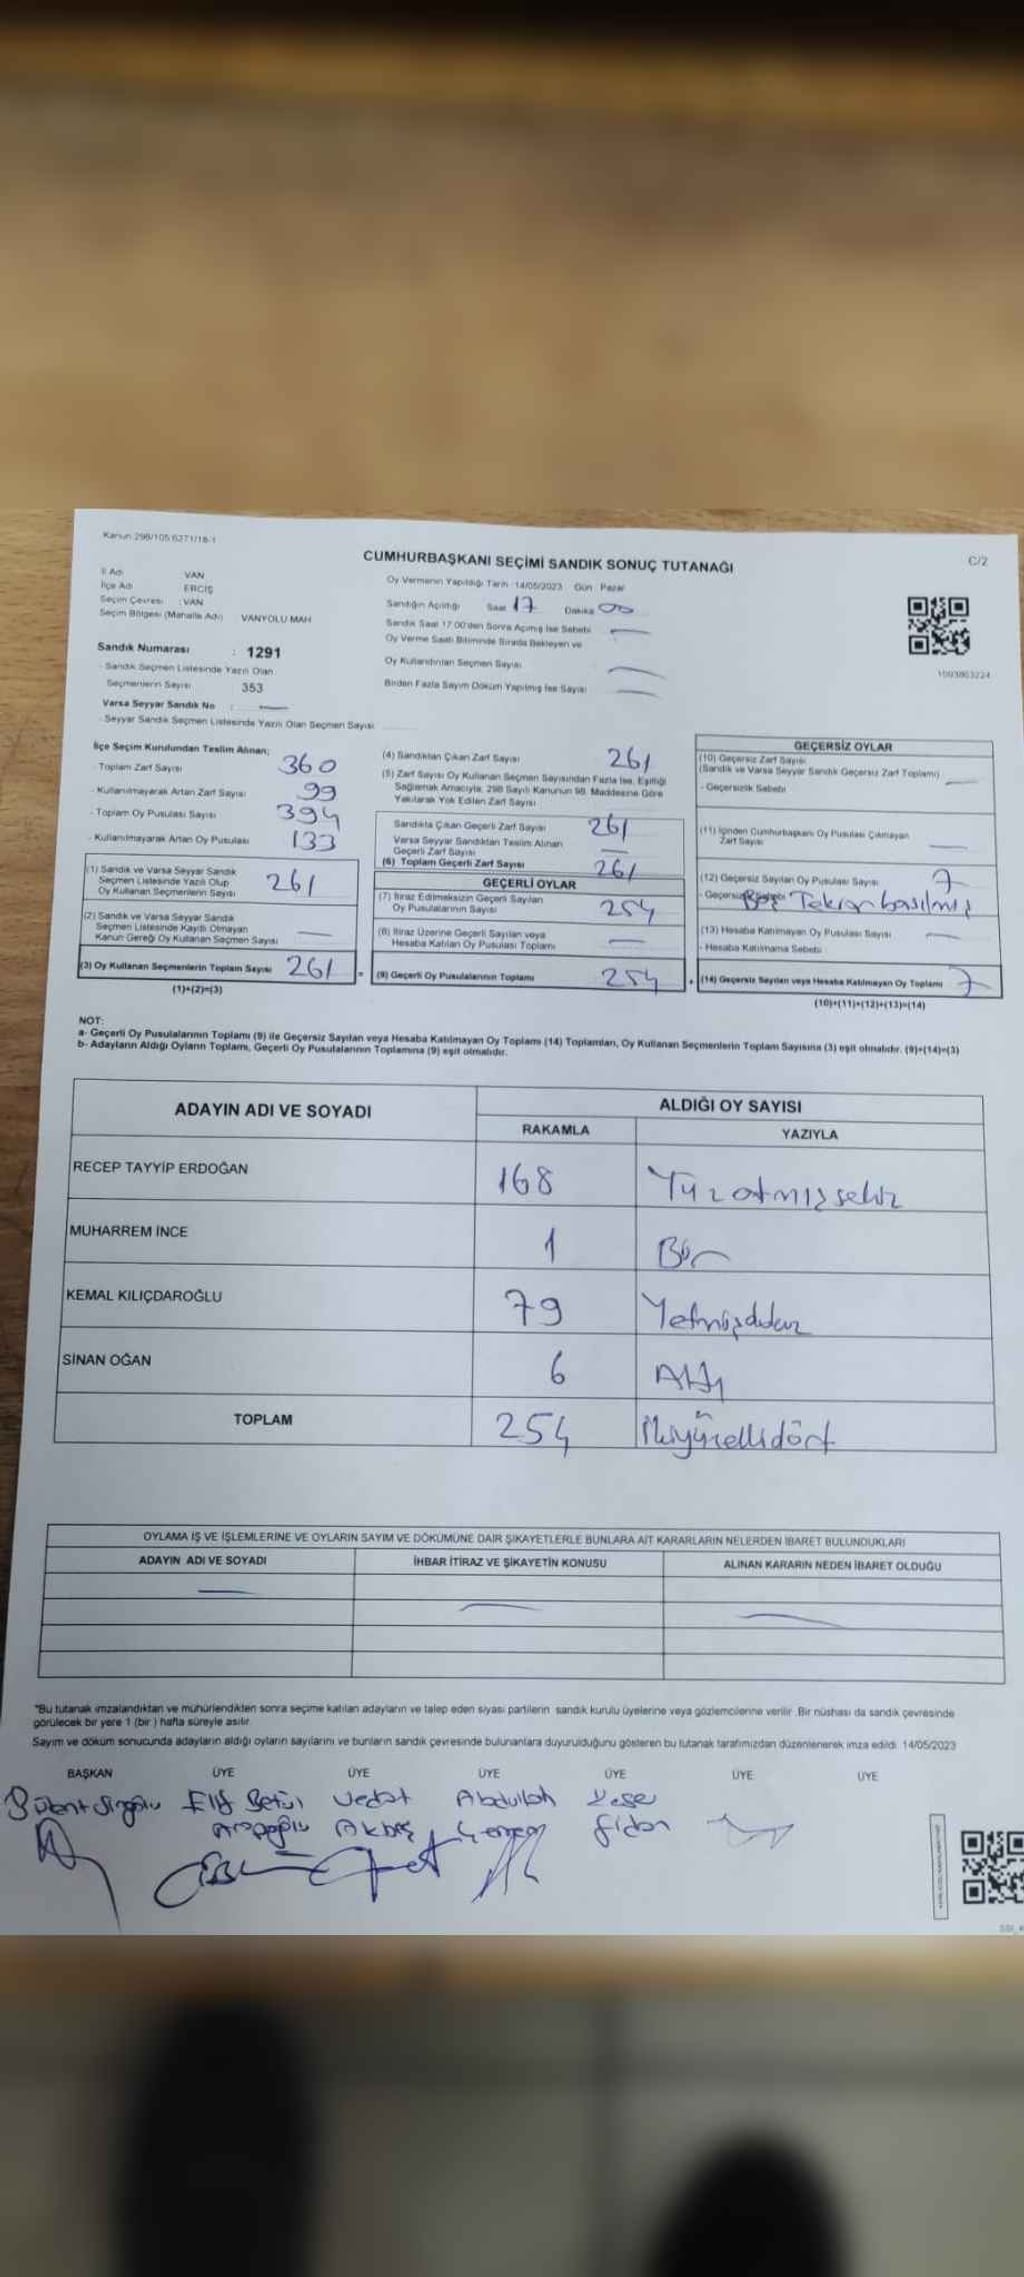 Kanun 298/105 6271/18-1
CUMHURBAŞKANI SEÇİMİ SANDIK SONUÇ TUTANAĞI
C/2
İl Adı VAN
İlçe Adı ERCİŞ
Seçim Çevresi : VAN
Seçim Bölgesi (Mahalle Adı) VANYOLU MAH
Sandık Numarası : 1291
- Sandık Seçmen Listesinde Yazılı Olan
Seçmenlerin Sayısı 353
Varsa Seyyar Sandık No :
- Seyyar Sandık Seçmen Listesinde Yazılı Olan Seçmen Sayısı
Oy Vermenin Yapıldığı Tarih : 14/05/2023 Gün : Pazar
Sandığın Açıldığı Saat 17 Dakika 00
Sandık Saat 17.00'den Sonra Açılmış İse Sebebi
Oy Verme Saati Bitiminde Sırada Bekleyen ve
Oy Kullandırılan Seçmen Sayısı
Birden Fazla Sayım Döküm Yapılmış İse Sayısı
1003863224
İlçe Seçim Kurulundan Teslim Alınan;
- Toplam Zarf Sayısı 360
- Kullanılmayarak Artan Zarf Sayısı 99
- Toplam Oy Pusulası Sayısı 394
- Kullanılmayarak Artan Oy Pusulası 133
(1) Sandık ve Varsa Seyyar Sandık
Seçmen Listesinde Yazılı Olup
Oy Kullanan Seçmenlerin Sayısı 261
(2) Sandık ve Varsa Seyyar Sandık
Seçmen Listesinde Kayıtlı Olmayan
Kanun Gereği Oy Kullanan Seçmen Sayısı
(3) Oy Kullanan Seçmenlerin Toplam Sayısı 261
(1)+(2)=(3)
(4) Sandıktan Çıkan Zarf Sayısı 261
(5) Zarf Sayısı Oy Kullanan Seçmen Sayısından Fazla İse, Eşitliği
Sağlamak Amacıyla, 298 Sayılı Kanunun 98. Maddesine Göre
Yakılarak Yok Edilen Zarf Sayısı
Sandıkta Çıkan Geçerli Zarf Sayısı 261
Varsa Seyyar Sandıktan Teslim Alınan
Geçerli Zarf Sayısı
(6) Toplam Geçerli Zarf Sayısı 261
GEÇERLİ OYLAR
(7) İtiraz Edilmeksizin Geçerli Sayılan
Oy Pusulalarının Sayısı 254
(8) İtiraz Üzerine Geçerli Sayılan veya
Hesaba Katılan Oy Pusulası Toplamı
(9) Geçerli Oy Pusulalarının Toplamı 254
GEÇERSİZ OYLAR
(10) Geçersiz Zarf Sayısı
(Sandık ve Varsa Seyyar Sandık Geçersiz Zarf Toplamı)
- Geçersizlik Sebebi
(11) İçinden Cumhurbaşkanı Oy Pusulası Çıkmayan
Zarf Sayısı
(12) Geçersiz Sayılan Oy Pusulası Sayısı 7
- Geçersizlik Sebebi Boş Tekrar basılmış
(13) Hesaba Katılmayan Oy Pusulası Sayısı
- Hesaba Katılmama Sebebi
(14) Geçersiz Sayılan veya Hesaba Katılmayan Oy Toplamı 7
(10)+(11)+(12)+(13)=(14)
NOT:
a- Geçerli Oy Pusulalarının Toplamı (9) ile Geçersiz Sayılan veya Hesaba Katılmayan Oy Toplamı (14) Toplamları, Oy Kullanan Seçmenlerin Toplam Sayısına (3) eşit olmalıdır. (9)+(14)=(3)
b- Adayların Aldığı Oyların Toplamı, Geçerli Oy Pusulalarının Toplamına (9) eşit olmalıdır.
ADAYIN ADI VE SOYADI
ALDIĞI OY SAYISI
RAKAMLA YAZIYLA
RECEP TAYYİP ERDOĞAN 168 Yüzatmışsekiz
MUHARREM İNCE 1 Bir
KEMAL KILIÇDAROĞLU 79 Yetmişdokuz
SİNAN OĞAN 6 Altı
TOPLAM 254 İkiyüzellidört
OYLAMA İŞ VE İŞLEMLERİNE VE OYLARIN SAYIM VE DÖKÜMÜNE DAİR ŞİKAYETLERLE BUNLARA AİT KARARLARIN NELERDEN İBARET BULUNDUKLARI
ADAYIN ADI VE SOYADI İHBAR İTİRAZ VE ŞİKAYETİN KONUSU ALINAN KARARIN NEDEN İBARET OLDUĞU
*Bu tutanak imzalandıktan ve mühürlendikten sonra seçime katılan adayların ve talep eden siyasi partilerin sandık kurulu üyelerine veya gözlemcilerine verilir. Bir nüshası da sandık çevresinde
görülecek bir yere 1 (bir) hafta süreyle asılır.
Sayım ve döküm sonucunda adayların aldığı oyların sayılarını ve bunların sandık çevresinde bulunanlara duyurulduğunu gösteren bu tutanak tarafımızdan düzenlenerek imza edildi. 14/05/2023
BAŞKAN ÜYE ÜYE ÜYE ÜYE ÜYE ÜYE
Bülent Elif Betül Vedat Abdullah
Akbaş Fidan